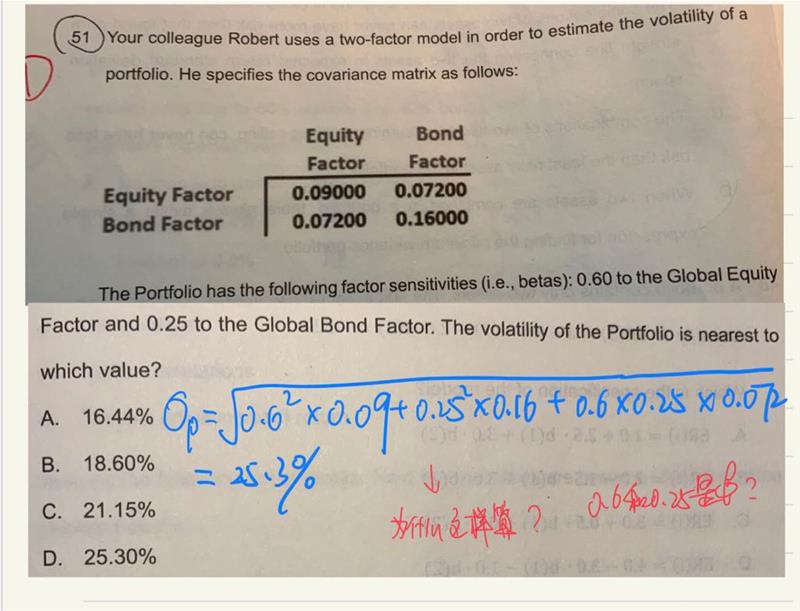 51 Your colleague Robert uses a two-factor model in order to estimate the volatility of a
D
portfolio. He specifies the covariance matrix as follows:
Equity Bond
Factor Factor
Equity Factor 0.09000 0.07200
Bond Factor 0.07200 0.16000
The Portfolio has the following factor sensitivities (i.e., betas): 0.60 to the Global Equity
Factor and 0.25 to the Global Bond Factor. The volatility of the Portfolio is nearest to
which value?
A. 16.44% σp=√0.6²×0.09+0.25²×0.16+0.6×0.25×0.072
B. 18.60% = 25.3%
C. 21.15% ↓
为什么这样算? 0.6和0.25是β?
D. 25.30%